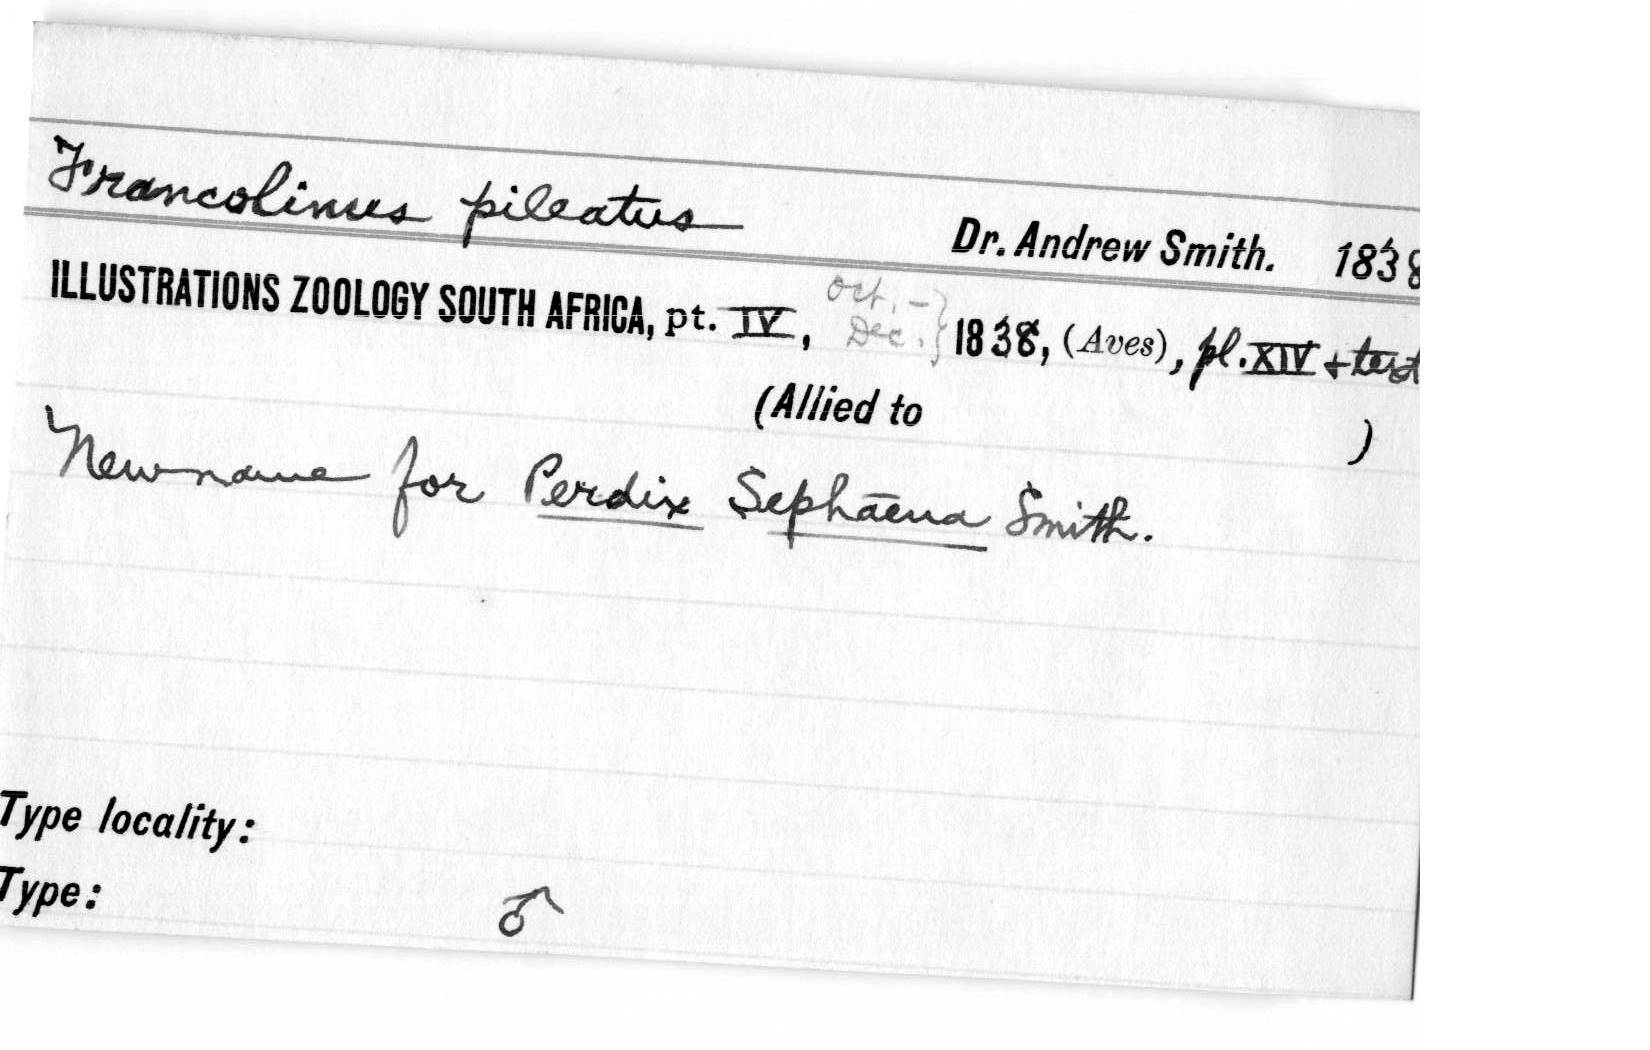 Francolinus pileatus
Dr. Andrew Smith. 1838
ILLUSTRATIONS ZOOLOGY SOUTH AFRICA, pt. IV, Oct. – Dec.} 1838, (Aves), pl. XIV + text
(Allied to )
New name for Perdix Sephāena Smith.
Type locality:
Type: ♂